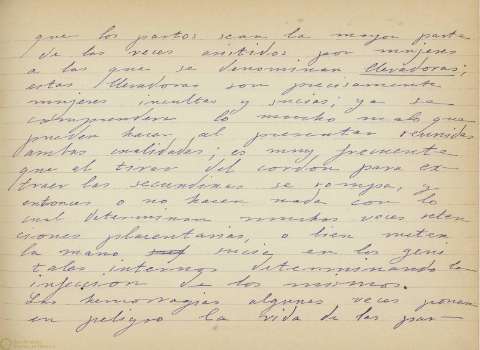 que los partos sean la mayor parte
de las veces asistidos por mujeres
a las que se denominan llevadoras;
estas llevadoras son precisamente
mujeres incultas y sucias; ya se
comprenderá lo mucho malo que
pueden hacer, al presentar reunidas
ambas cualidades; es muy frecuente
que al tirar del cordón para ex-
traer las secundinas se rompa, y
entonces o no hacen nada con lo
cual determinan muchas veces reten
ciones placentarias, o bien meten
la mano sucia en los geni
tales internos determinando la
infección de los mismos.
Las hemorragias algunas veces ponen
en peligro la vida de las par-